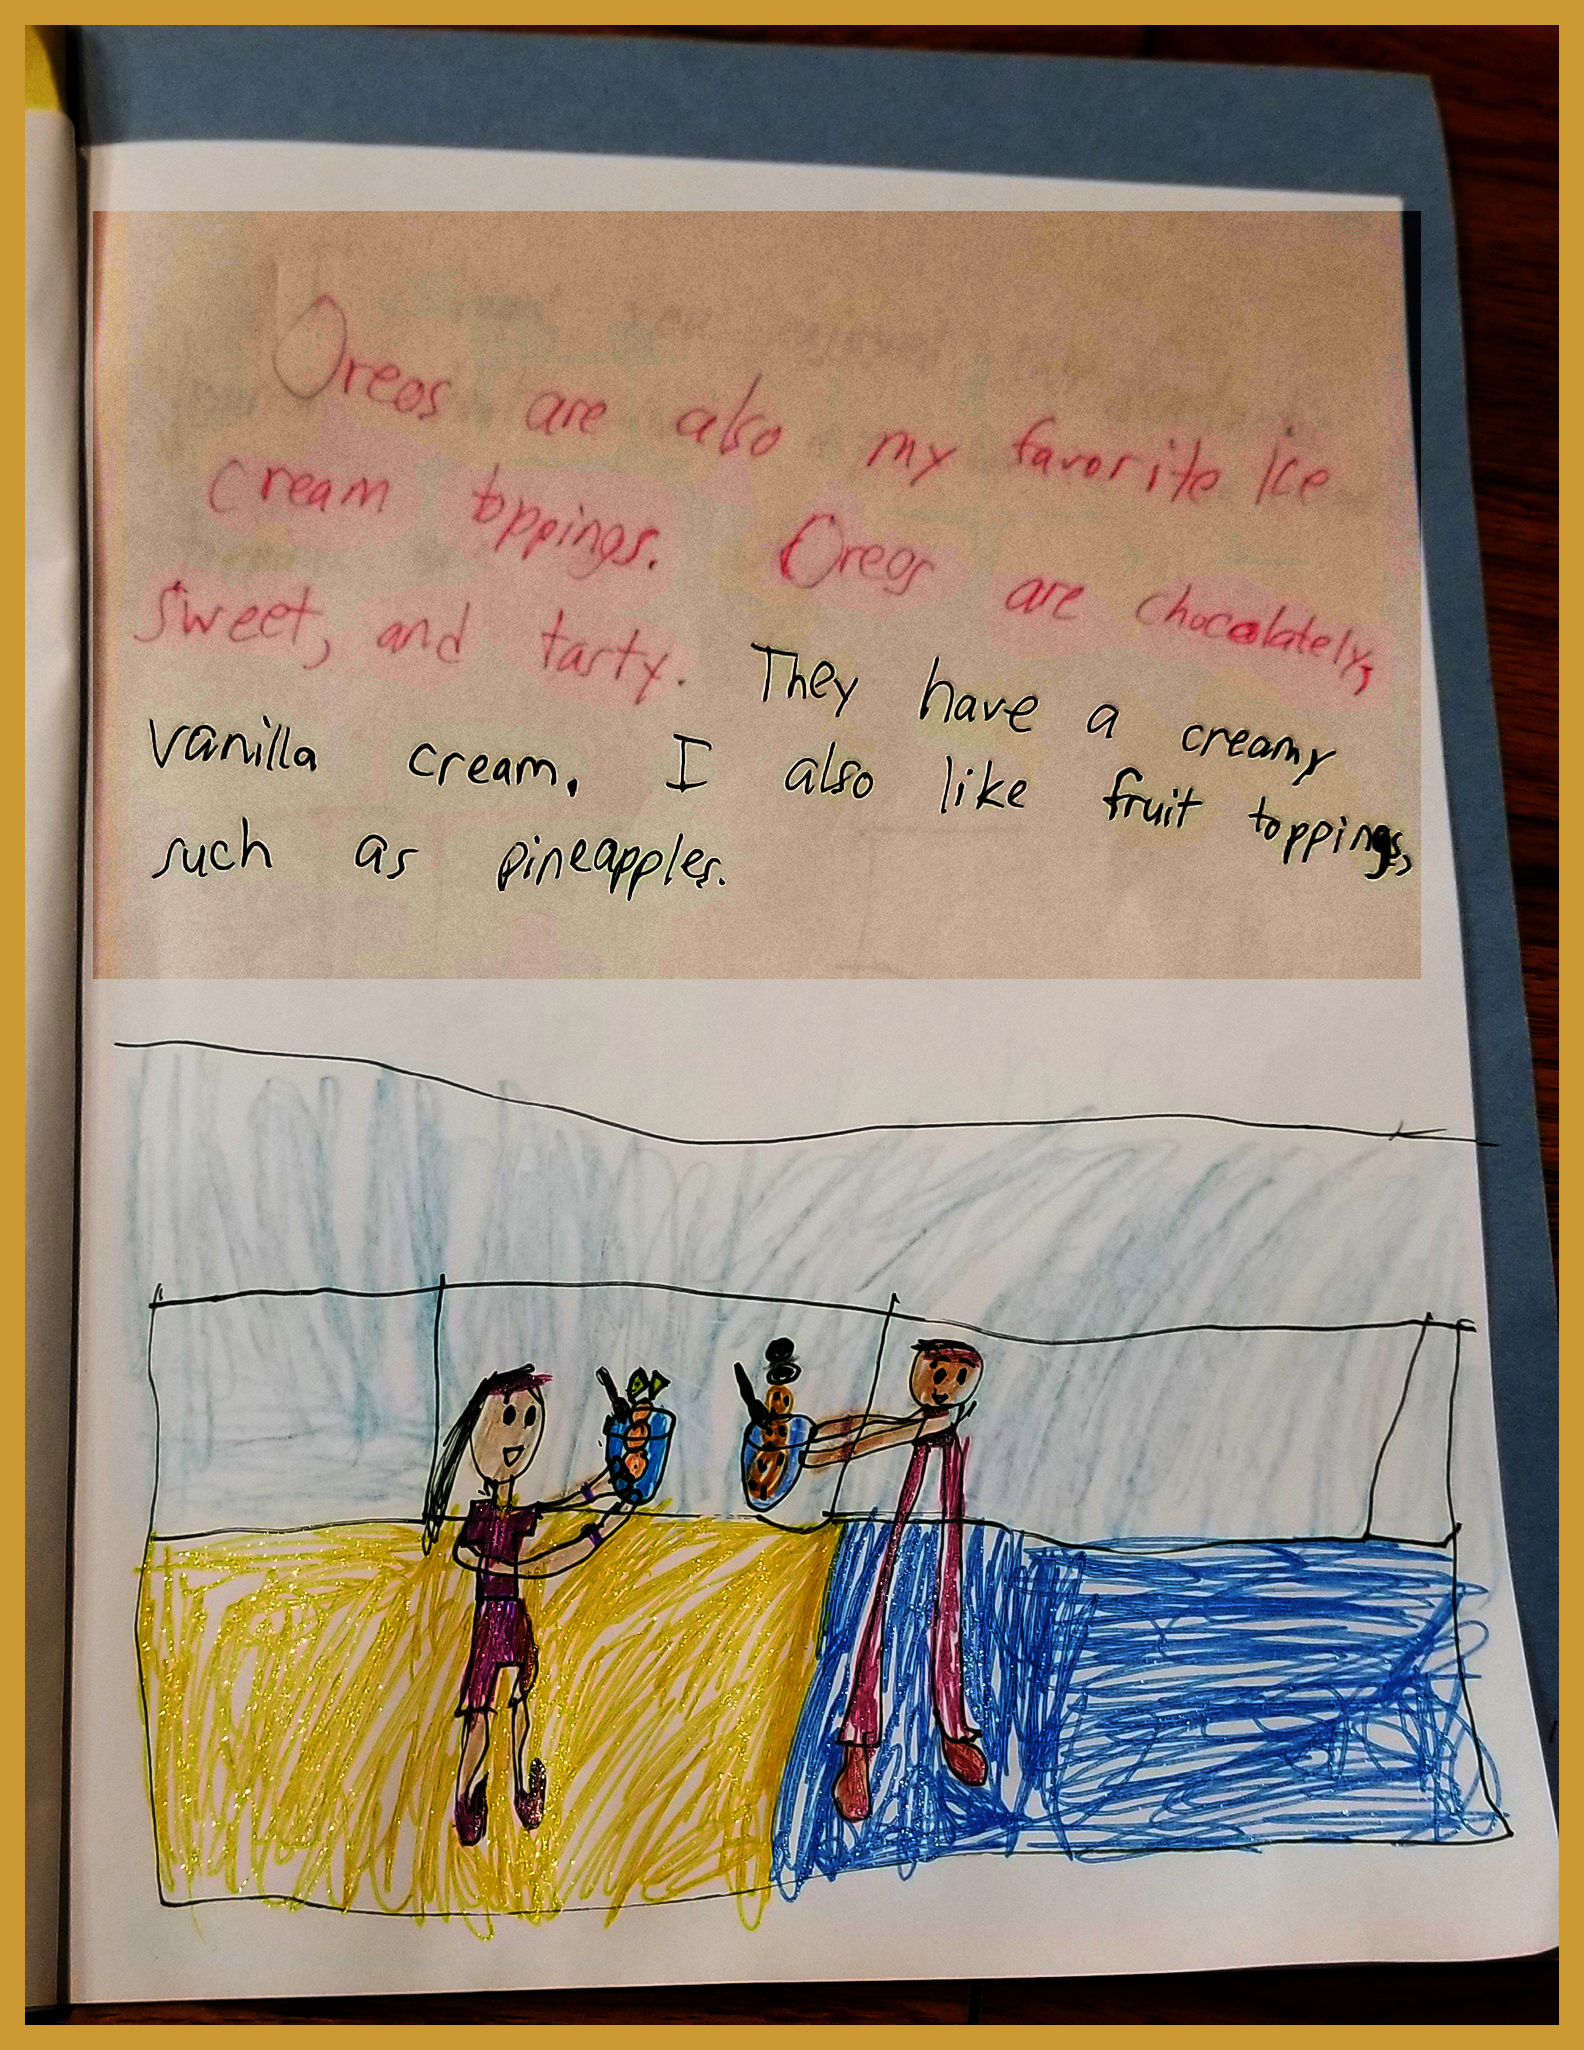 Oreos are also my favorite ice
cream toppings. Oreos are chocolately,
sweet, and tarty. They have a creamy
vanilla cream. I also like fruit toppings,
such as pineapples.